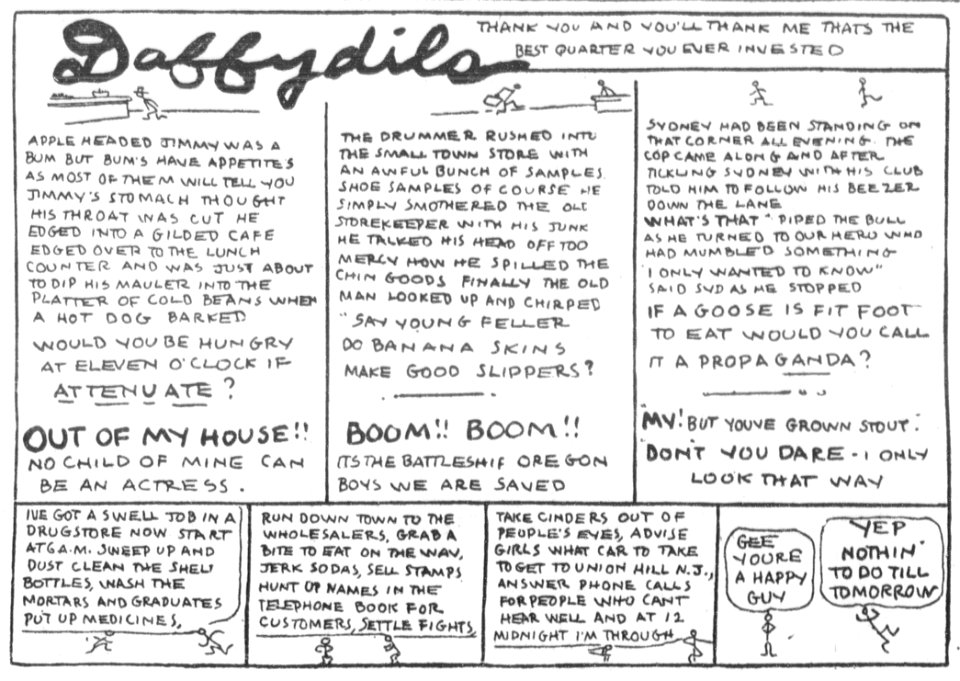 Daffydils
THANK YOU AND YOU'LL THANK ME THATS THE
BEST QUARTER YOU EVER INVESTED
APPLE HEADED JIMMY WAS A
BUM BUT BUM'S HAVE APPETITES
AS MOST OF THEM WILL TELL YOU
JIMMY'S STOMACH THOUGHT
HIS THROAT WAS CUT HE
EDGED INTO A GILDED CAFE
EDGED OVER TO THE LUNCH
COUNTER AND WAS JUST ABOUT
TO DIP HIS MAULER INTO THE
PLATTER OF COLD BEANS WHEN
A HOT DOG BARKED
WOULD YOU BE HUNGRY
AT ELEVEN O'CLOCK IF
ATTENUATE?
OUT OF MY HOUSE!!
NO CHILD OF MINE CAN
BE AN ACTRESS.
THE DRUMMER RUSHED INTO
THE SMALL TOWN STORE WITH
AN AWFUL BUNCH OF SAMPLES.
SHOE SAMPLES OF COURSE HE
SIMPLY SMOTHERED THE OLD
STOREKEEPER WITH HIS JUNK
HE TALKED HIS HEAD OFF TOO
MERCY HOW HE SPILLED THE
CHIN GOODS FINALLY THE OLD
MAN LOOKED UP AND CHIRPED
"SAY YOUNG FELLER
DO BANANA SKINS
MAKE GOOD SLIPPERS?
BOOM!! BOOM!!
ITS THE BATTLESHIP OREGON
BOYS WE ARE SAVED
SYDNEY HAD BEEN STANDING ON
THAT CORNER ALL EVENING. THE
COP CAME ALONG AND AFTER
TICKLING SYDNEY WITH HIS CLUB
TOLD HIM TO FOLLOW HIS BEEZER
DOWN THE LANE
WHAT'S THAT" PIPED THE BULL
AS HE TURNED TO OUR HERO WHO
HAD MUMBLED SOMETHING
"I ONLY WANTED TO KNOW"
SAID SYD AS HE STOPPED
IF A GOOSE IS FIT FOOT
TO EAT WOULD YOU CALL
IT A PROPAGANDA?
"MY! BUT YOUVE GROWN STOUT.
"DON'T YOU DARE - I ONLY
LOOK THAT WAY
IVE GOT A SWELL JOB IN A
DRUGSTORE NOW START
AT 6 A.M. SWEEP UP AND
DUST CLEAN THE SHELF
BOTTLES, WASH THE
MORTARS AND GRADUATES
PUT UP MEDICINES,
RUN DOWN TOWN TO THE
WHOLESALERS, GRAB A
BITE TO EAT ON THE WAY,
JERK SODAS, SELL STAMPS
HUNT UP NAMES IN THE
TELEPHONE BOOK FOR
CUSTOMERS, SETTLE FIGHTS,
TAKE CINDERS OUT OF
PEOPLE'S EYES, ADVISE
GIRLS WHAT CAR TO TAKE
TO GET TO UNION HILL N.J.,
ANSWER PHONE CALLS
FOR PEOPLE WHO CANT
HEAR WELL AND AT 12
MIDNIGHT I'M THROUGH
GEE
YOURE
A HAPPY
GUY
YEP
NOTHIN'
TO DO TILL
TOMORROW